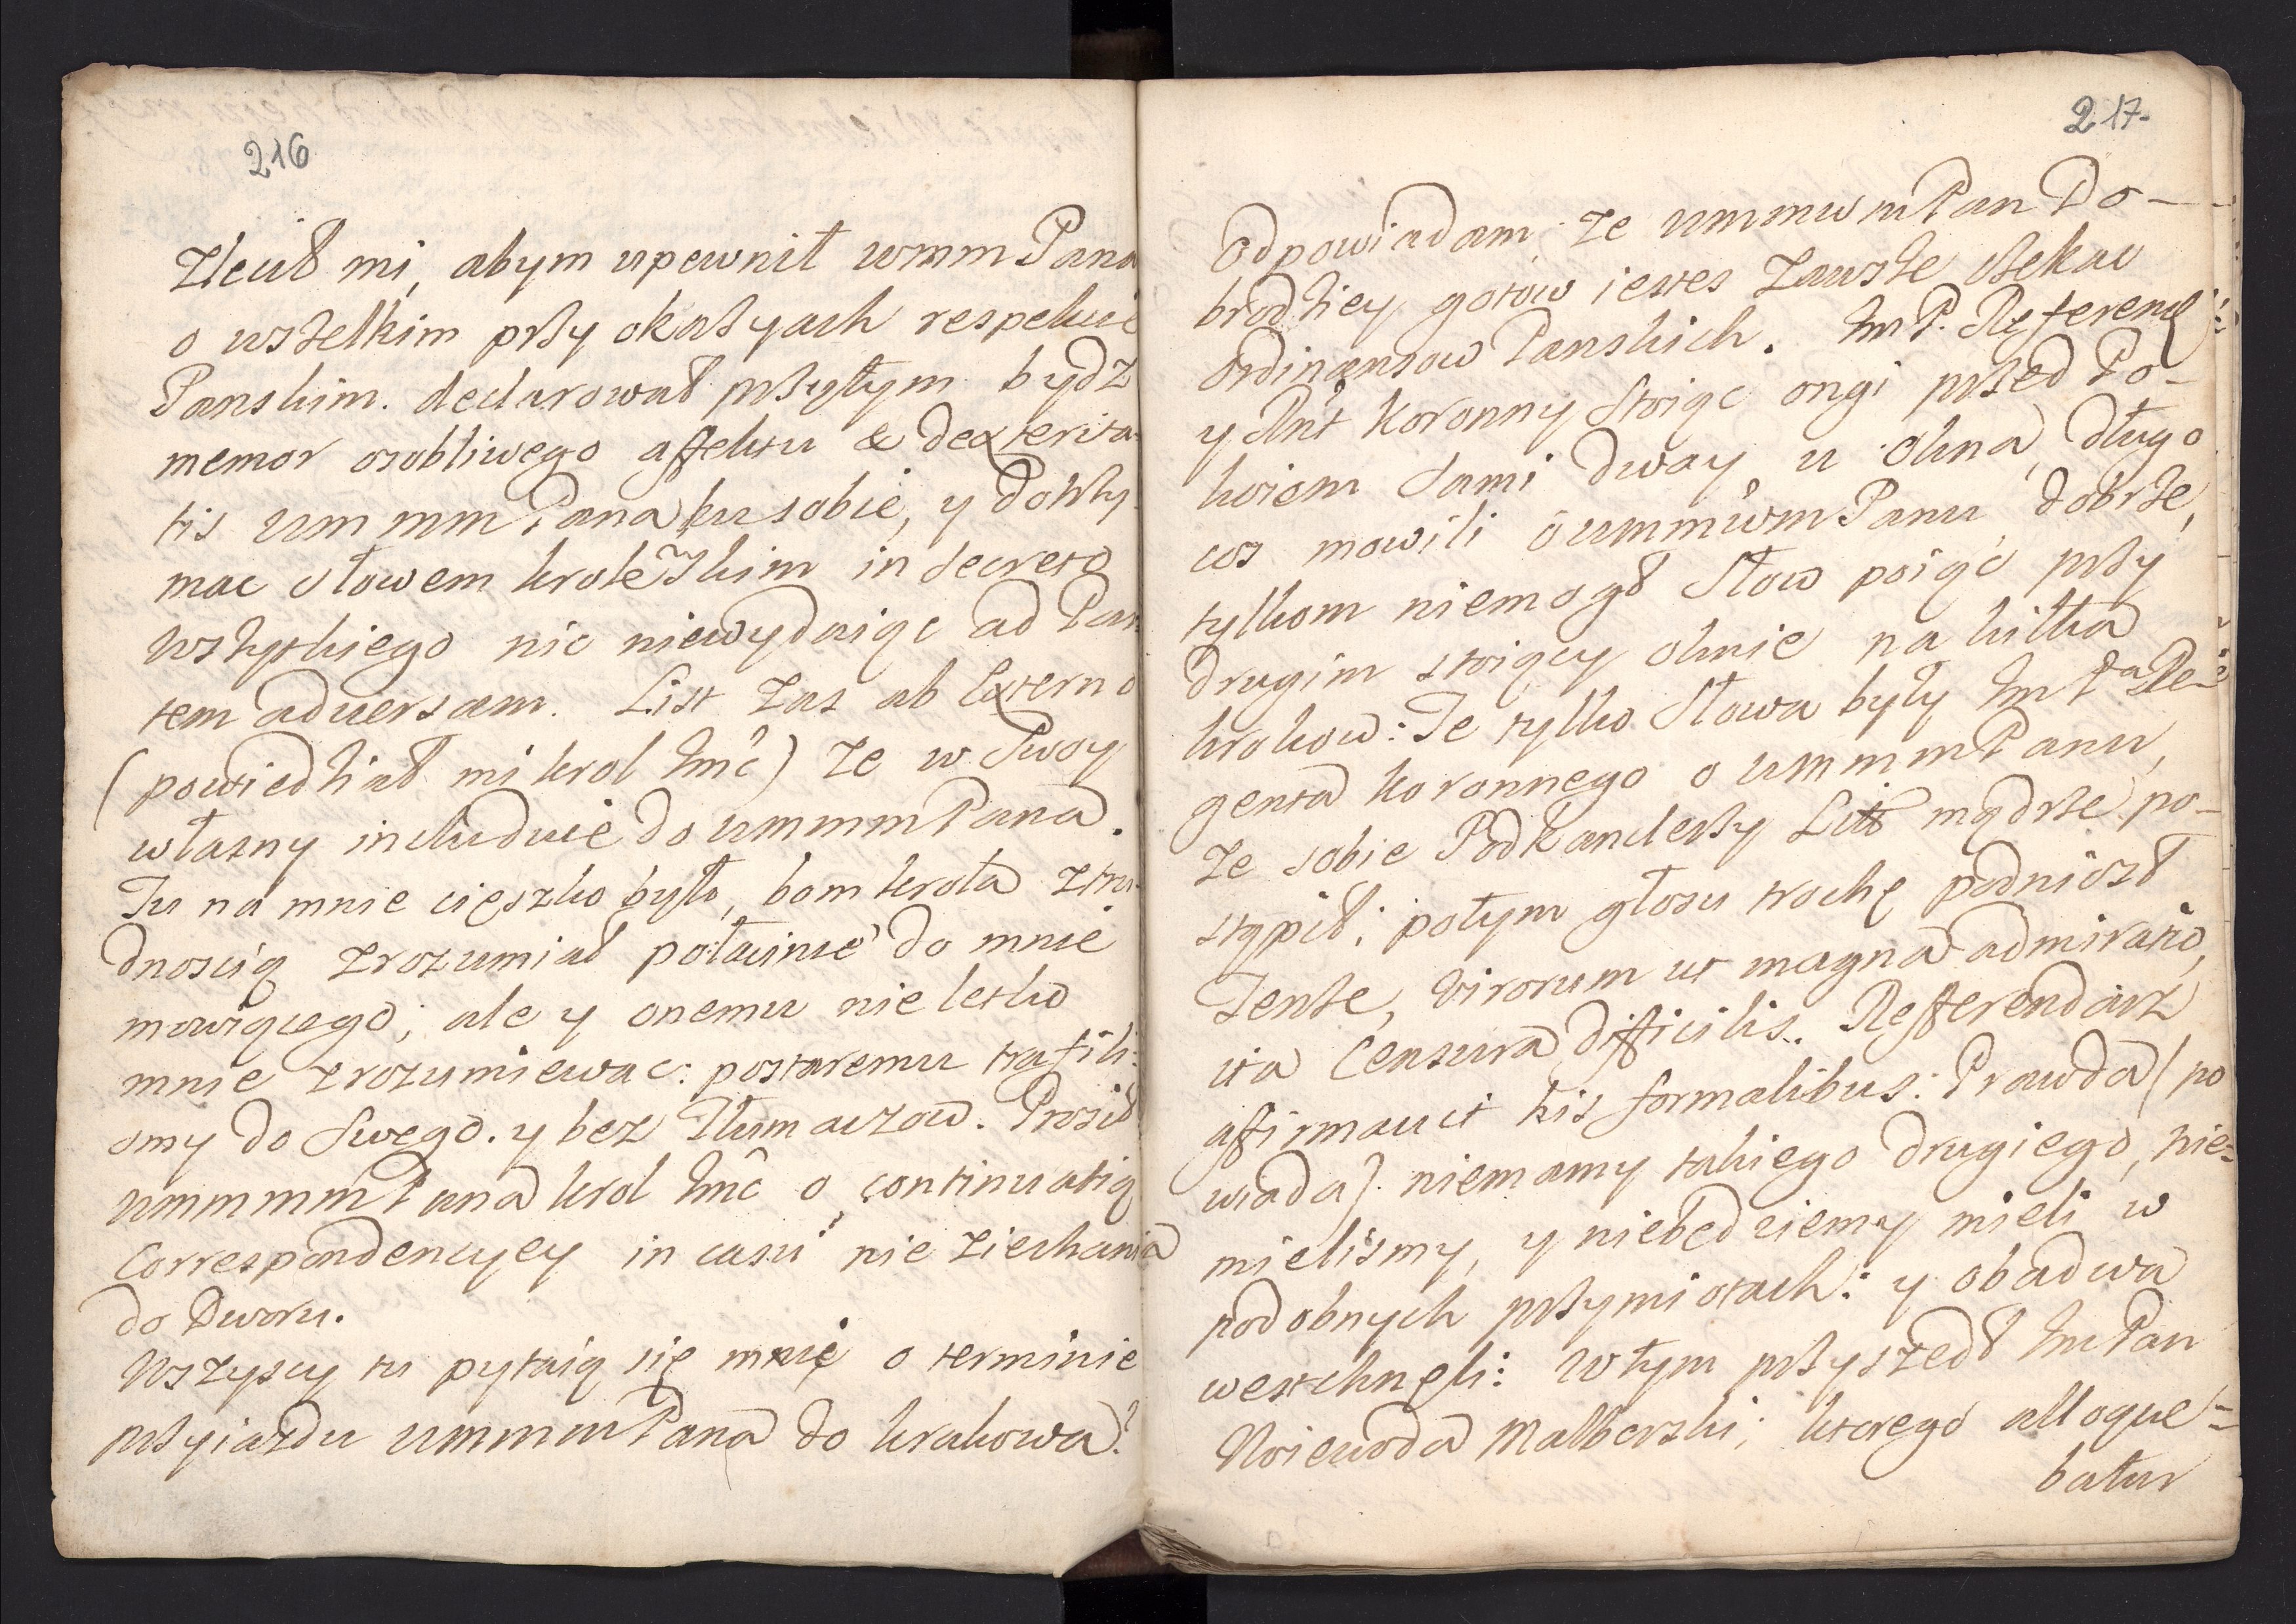 216
Zlecił mi, abym upewnił wmm Pana
o wszelkim przy okazyach respekcie
Panskim. declarował przytym bydz
memor osobliwego affektu & dexterita-
tis ummm Pana ku sobie, y dotrzy-
mac słowem krolewskim in secreto
wszytkiego nic niewydaiąc ad Par-
tem adversam. List zas ab Externo
(powiedział mi krol Jmć) ze w swoy
własny includuie do ummm Pana.
Tu na mnie cięszko było, bom krola z tru-
dnoscią zrozumiał po łacinie do mnie
mowiącego; ale y onemu nie letko
mnie zrozumiewac: postaremu trafili-
smy do swego. y bez Tłumaczow. Prosił
ummmm Pana krol Jmć o continuatią
Correspondencyey in casu nie ziechania
do Dworu.
Wszyscy tu pytaią się mnię o terminie
przyiazdu ummm Pana do krakowa?
217.
Odpowiadam, ze ummwm Pan Do-
brodziey gotow iestes zawsze czekac
Ordinansow Panskich. Jm P. Referend
y Rnt Koronny stoiąc ongi przed Po-
koiem sami dway u okna, długo
cos mowili o ummwm Panu dobrze,
tylkom niemogł słow poiąć przy
drugim stoiący oknie na kilka
krokow: Te tylko słowa były Jm Pa Re-
genta koronnego o ummm Panu,
ze sobie Podkanclerzy Litt mądrze po-
stąpił; potym głosu trochę podniosł
Tenże, virorum ut magna admiratio,
ita Censura difficilis. Refferendarz
affirmavit his formalibus: Prawda (po
wiada) niemamy takiego drugiego, nie-
mielismy, y niebędziemy mieli w
podobnych przymiotach: y obadwa
westchnęli: W tym przyszedł Jm Pan
Woiewoda Malborski; ktorego alloque-
batur